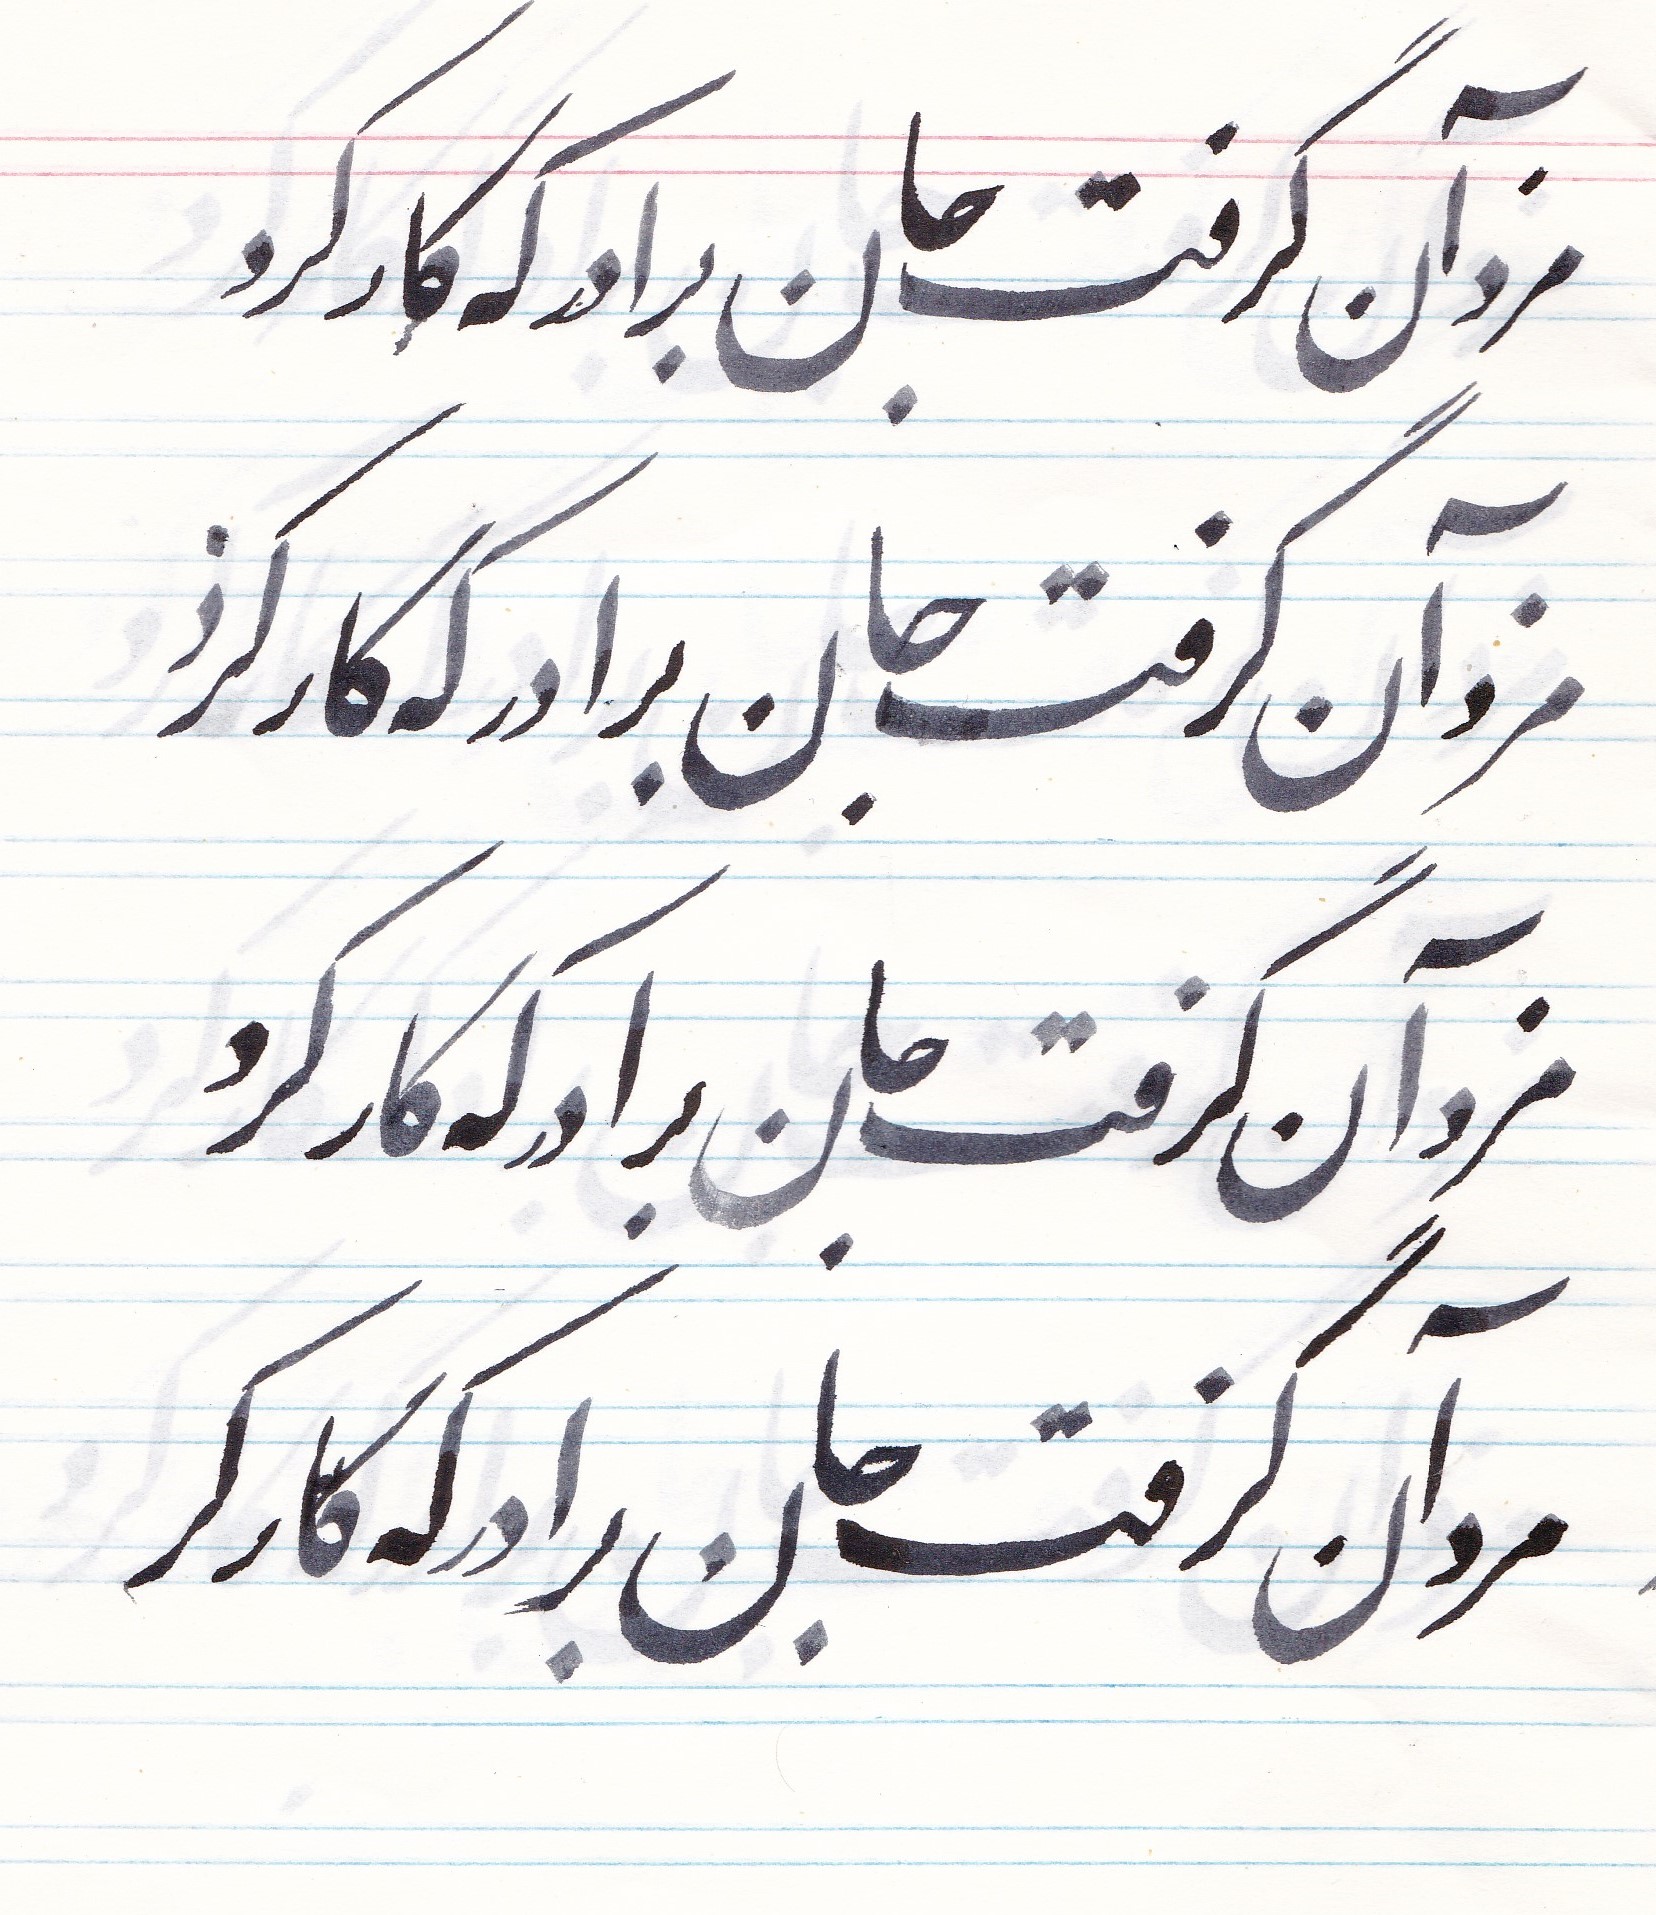 مزد آن گرفت جان برادر که کار کرد
مزد آن گرفت جان برادر که کار کرذ
مزد آن گرفت جان برادر که کار کرد
مرد آن گرفت جان برادر که کار کر